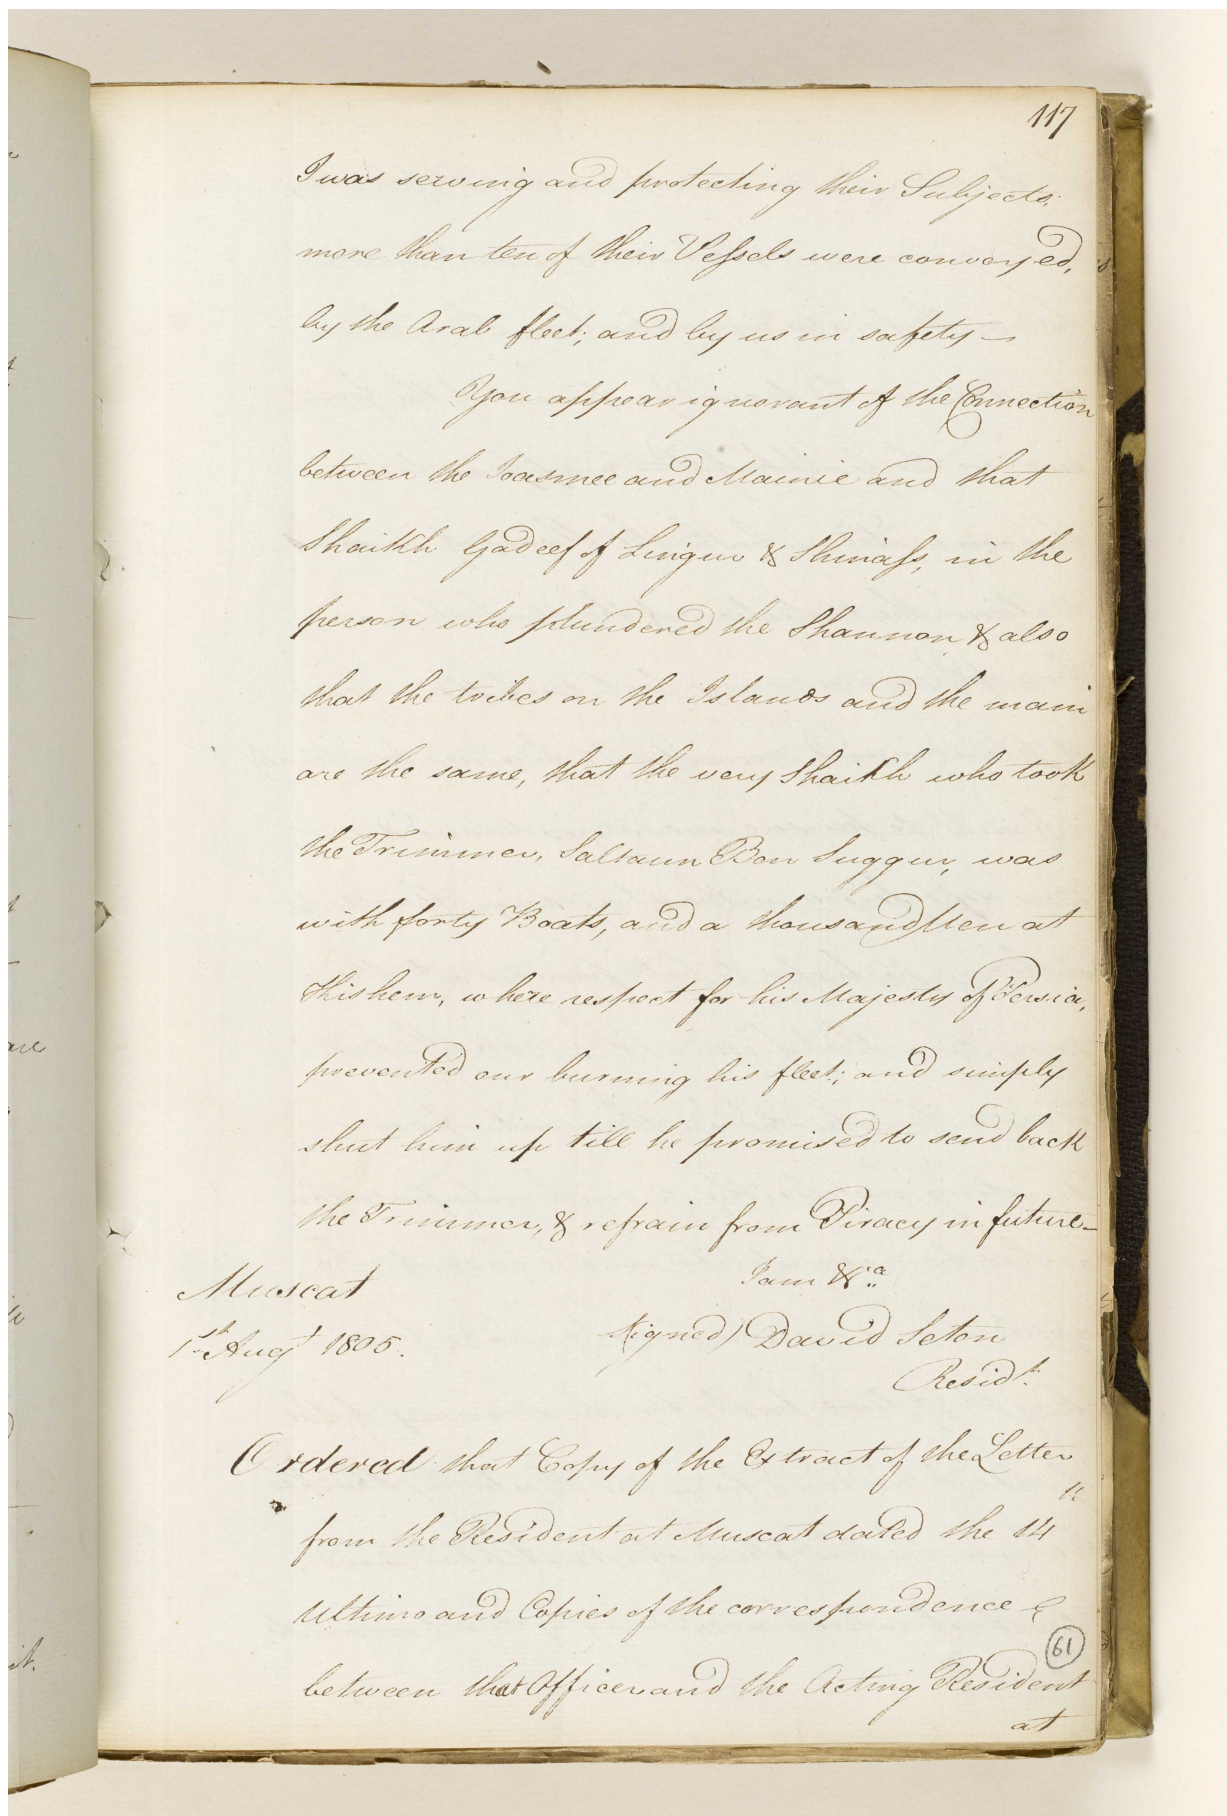 117
I was serving and protecting their Subjects;
more than ten of their Vessels were convoyed,
by the Arab fleet; and by us in safety —
You appear ignorant of the Connection
between the Joasmee and Mainie and that
Shaikh Gadeef of Lingur & Shinass, in the
person who plundered the Shannon & also
that the tribes on the Islands and the main
are the same, that the very Shaikh who took
the Trimmer, Saltaun Ben Suggur, was
with forty Boats, and a thousand Men at
Khishem, where respect for his Majesty of Persia,
prevented our burning his fleet; and simply
shut him up till he promised to send back
the Trimmer, & refrain from Piracy in future —
I am &ca
Muscat
1st Augt 1805.
(signed) David Seton
Residt.
Ordered that Copy of the Extract of the Letter
from the Resident at Muscat dated the 14th
Ultimo and Copies of the correspondence
between that Officer and the Acting Resident
61
at